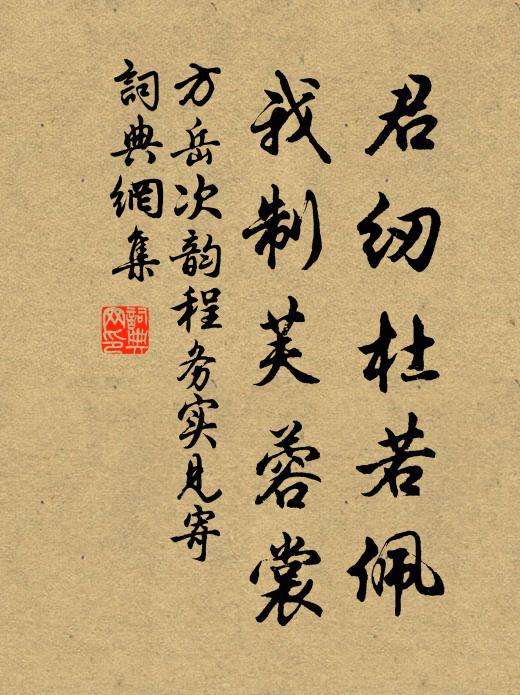 君纫杜若佩
我制芙蓉裳
方岳次韵程务实见寄
詞典網集
詞典网印